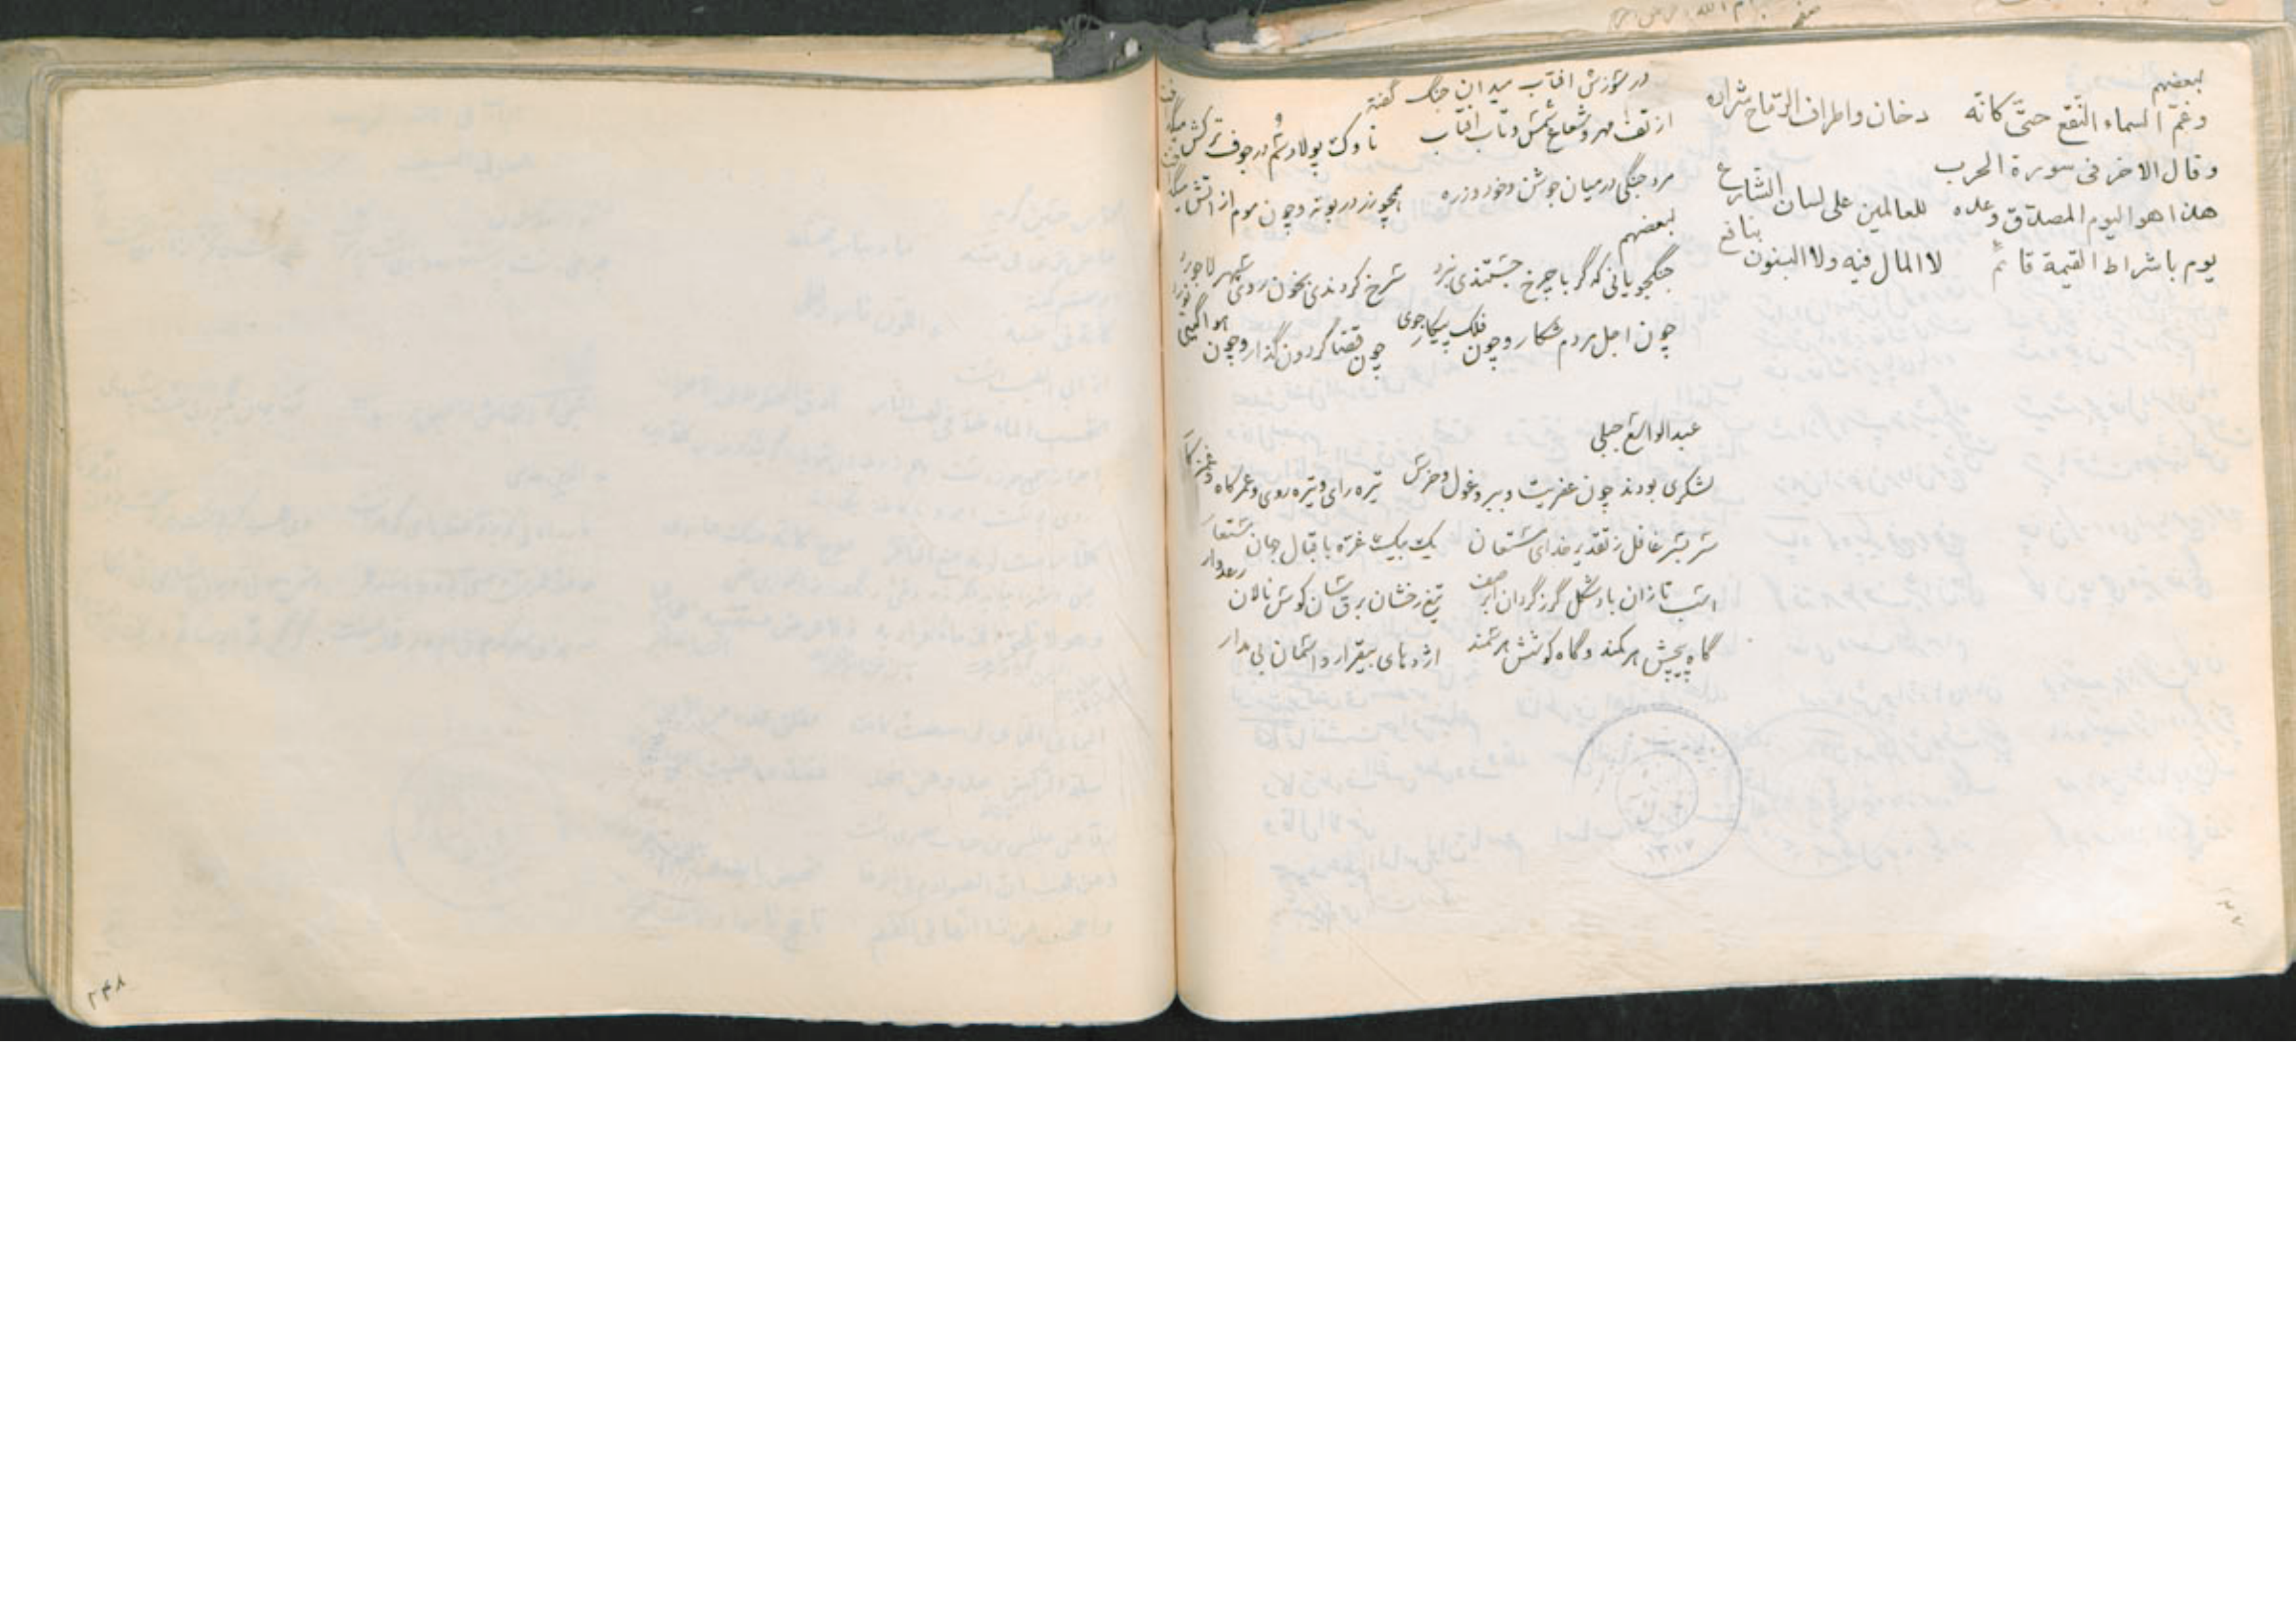 لبعضهم
وغمّ السماء النّقع حتّى كانّه دخان واطراف الرّماح شراره
وقال الاخر فى سورة الحرب
هذا هو اليوم المصدّق وعده للعالمين على لسان الشارع
يوم باشراط القيمة قائمٌ لا المال فيه ولا البنون بنافع
در سوزش افتاب میدان جنگ گفته
از تف مهر و شعاع شمس و تاب افتاب ناوک پولاد سم در جوف ترکش میگداخت
مرد جنگی در میان جوشن و خود و زره همچو زر در بوته و چون موم از اتش میگداخت
لبعضهم
جنگجویانی که گر با چرخ جستندی نبرد سرخ کردندی بخون روی سپهر لاجورد
چون اجل مردم شکار و چون فلک پیکارجوی چون قضا گردون گذار و چون هوا گیتی نورد
عبدالواسع جبلی
لشکری بودند چون عفریت و ببر و غول و خرس تیره رای و تیره روی و عمر کاه و
سر بسر غافل ز تقدیر خدای مستعان یک بیک غرّه باقبال جهان مستعار
اسب تازان باد شکل گرز گردان ابر صف تیغ رخشان برق سان کوس نالان رعدوار
گاه پیچش هر کمند و گاه کوشش هر سمند اژدهای بیقرار و اسمان بی مدار
۱۳۱۷
۲۴۸